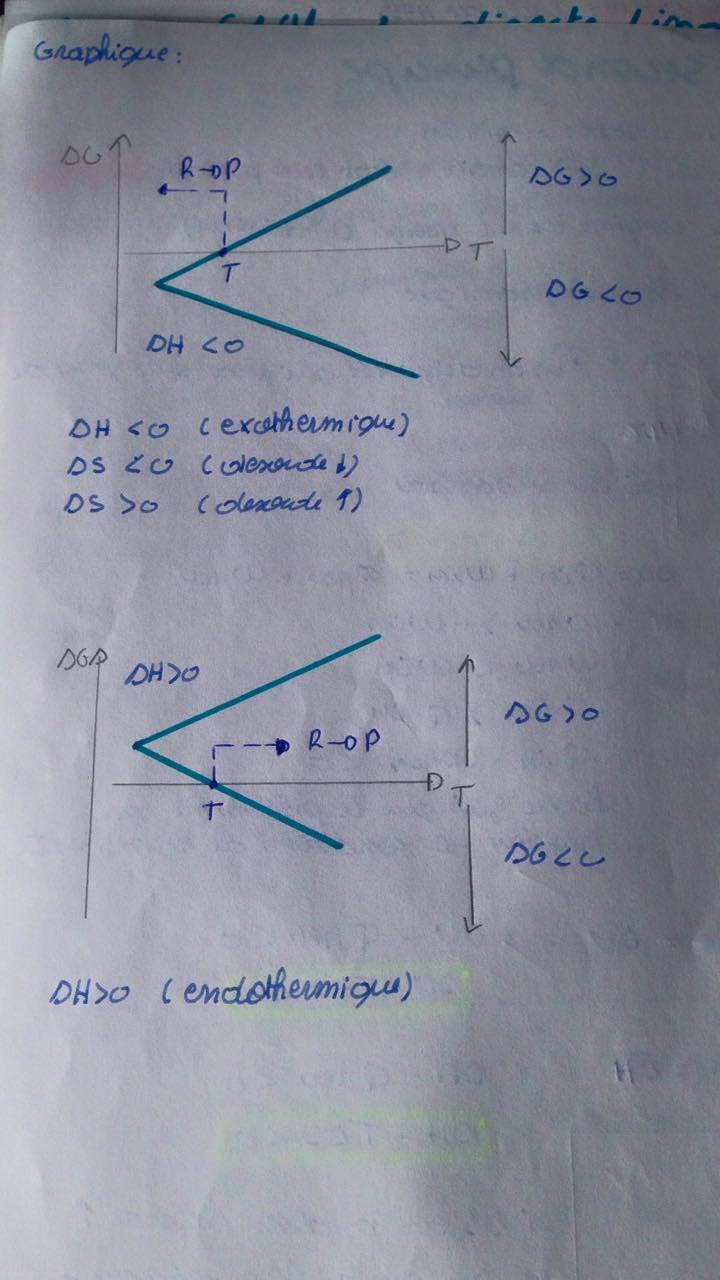 Graphique:
ΔG
R→P
ΔG>0
T
T
ΔG<0
ΔH <0
ΔH <0 (exothermique)
ΔS <0 (désordre ↓)
ΔS >0 (désordre ↑)
ΔG
ΔH>0
ΔG>0
R→P
T
T
ΔG<0
ΔH>0 (endothermique)